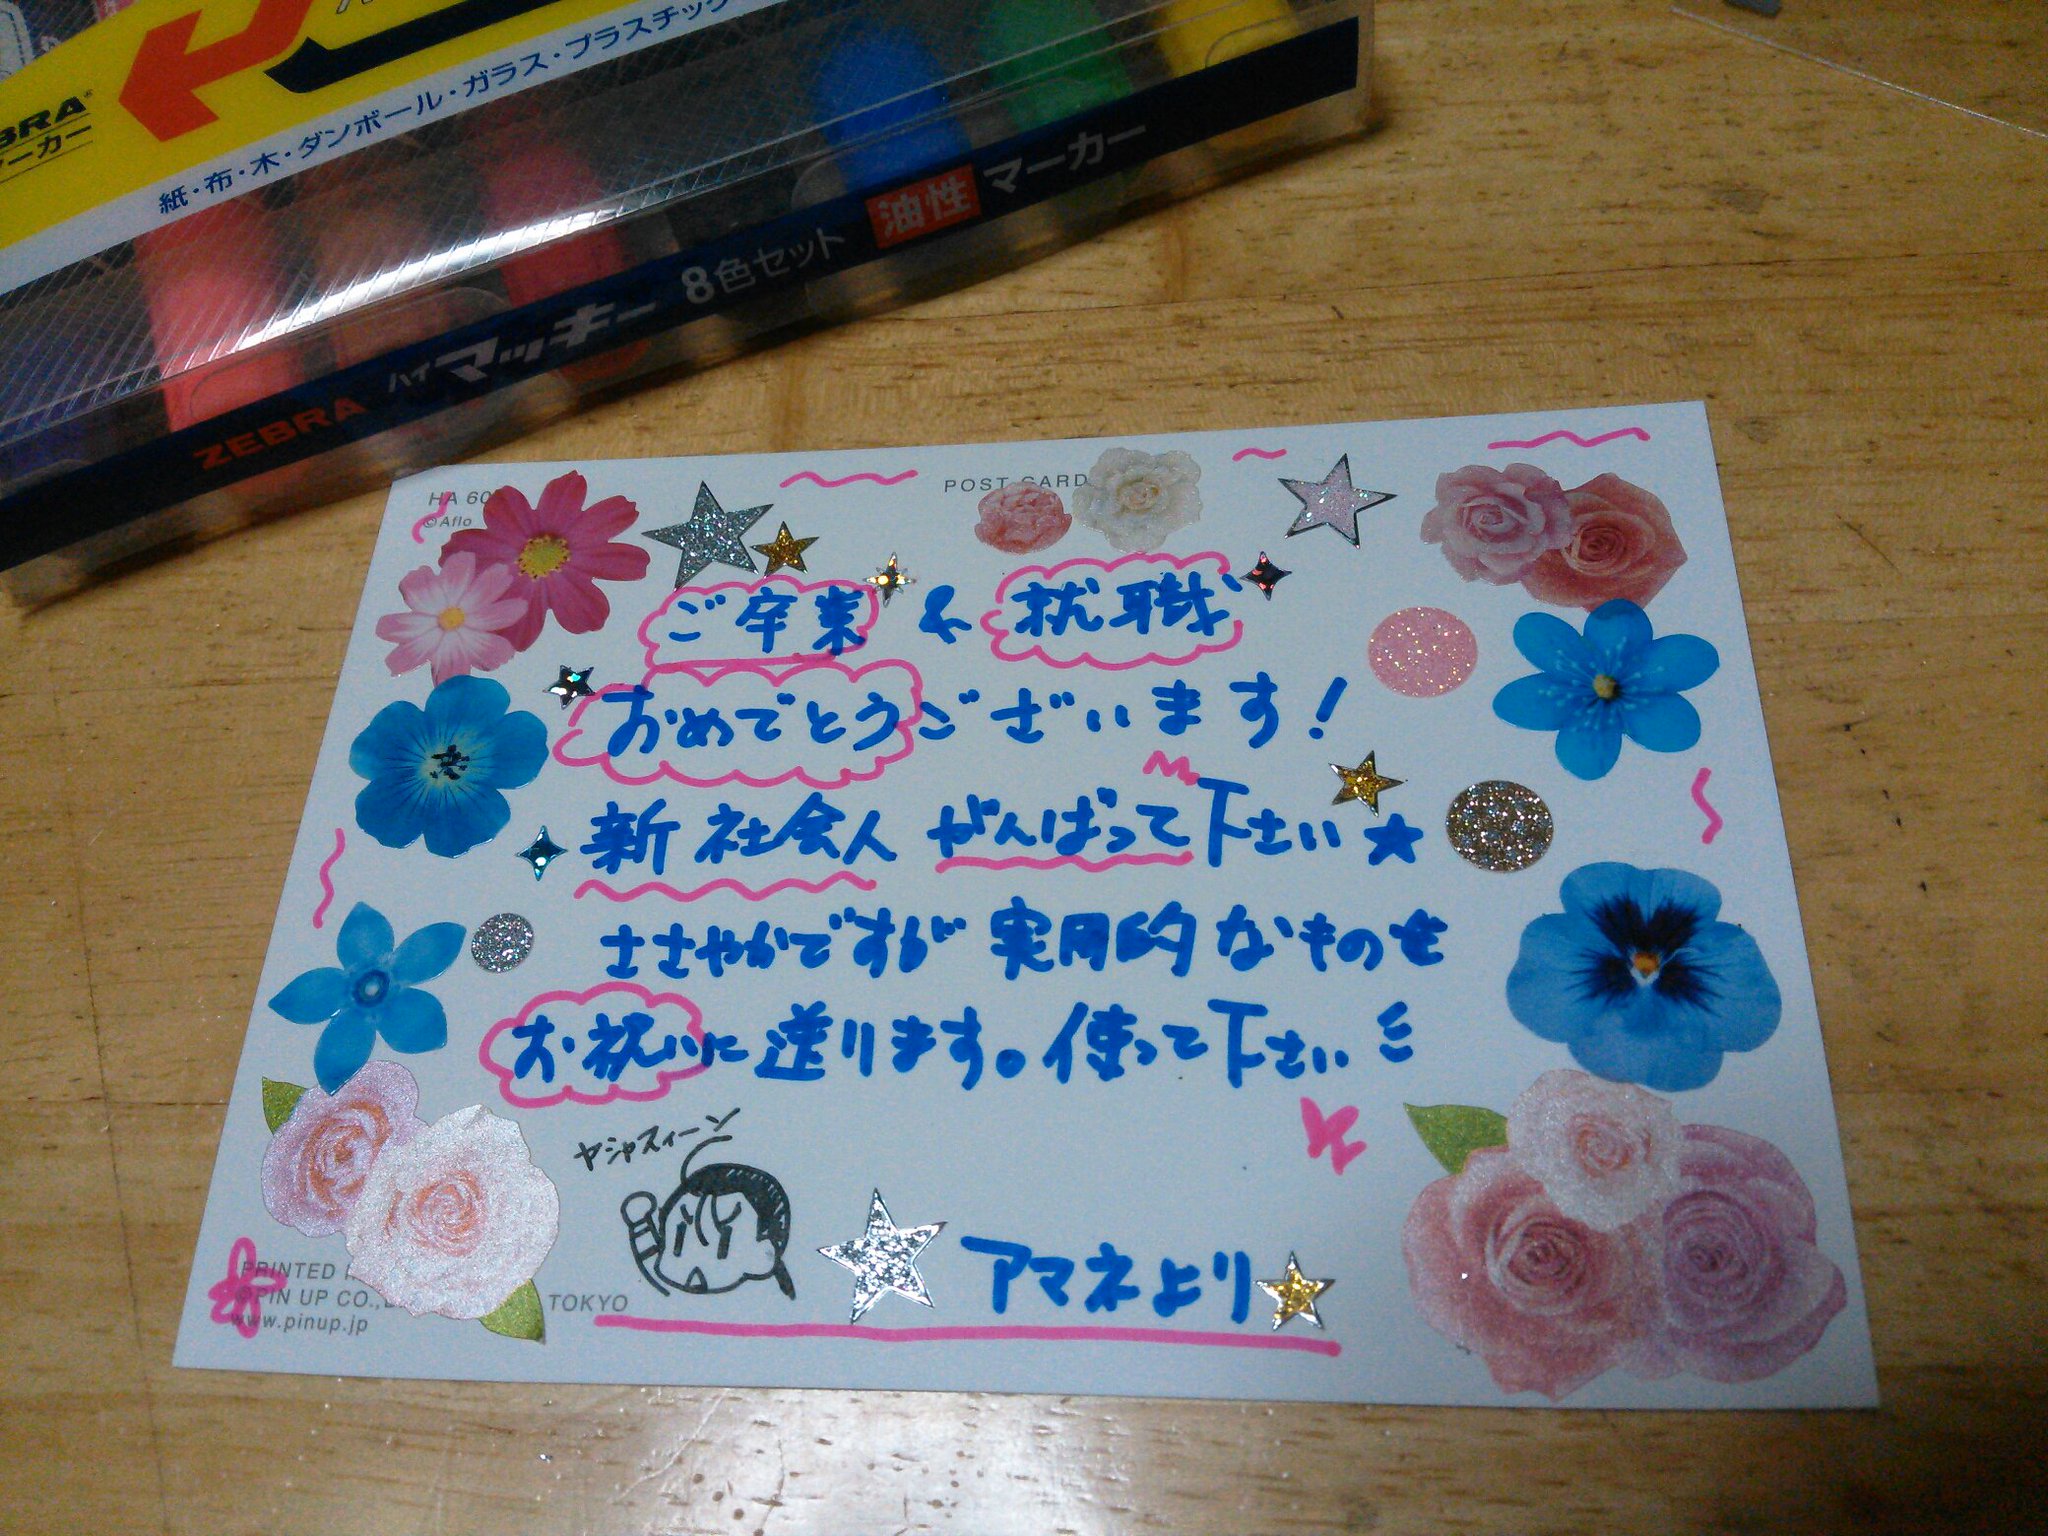 ZEBRA
紙・布・木・ダンボール・ガラス・プラスチック
ZEBRA ハイマッキー 8色セット 油性 マーカー
HA 60
©Aflo
POST CARD
ご卒業 & 就職
おめでとうございます!
新社会人 がんばって下さい★
ささやかですが 実用的なものを
お祝いに送ります。使って下さい
ヤシャスィーン
アマネより
PRINTED
©PIN UP CO.,
TOKYO
www.pinup.jp